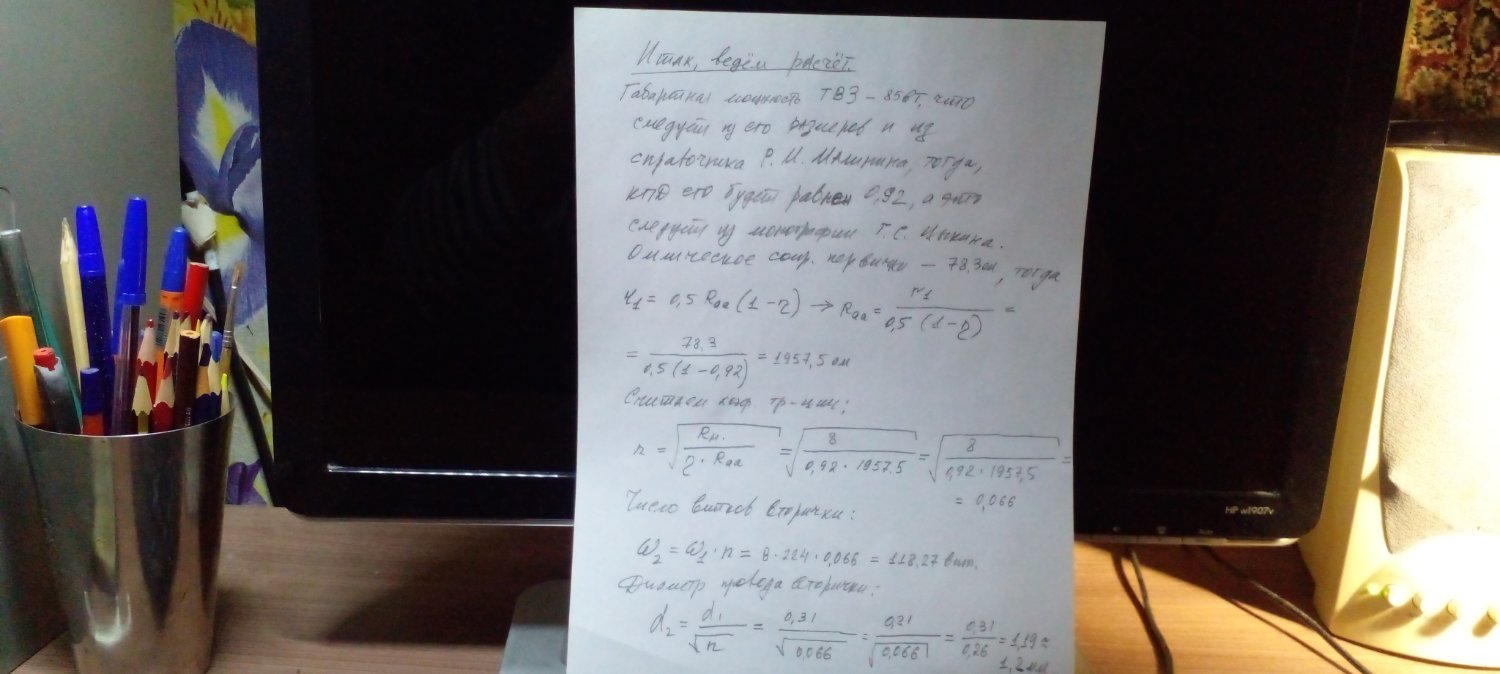 Итак, ведём расчёт.
Габаритная мощность ТВЗ – 85 Вт, что
следует из его размеров и из
справочника Р. М. Малинина, тогда,
КПД его будет равен 0,92, а это
следует из монографии Г. С. Цыкина.
Омическое сопр. первички – 78,3 ом, тогда
r₁ = 0,5 Rаа (1 – η) → Rаа = r₁ / 0,5 (1 – η) =
= 78,3 / 0,5 (1 – 0,92) = 1957,5 ом
Считаем коэф. тр-ции:
n = √(Rн. / η · Rаа) = √(8 / 0,92 · 1957,5) = √(8 / 0,92 · 1957,5) =
= 0,066
Число витков вторички:
ω₂ = ω₁ · n = 8 · 224 · 0,066 = 118,27 вит.
Диаметр провода вторички:
d₂ = d₁ / √n = 0,31 / √0,066 = 0,31 / √0,066 = 0,31 / 0,26 = 1,19 ≈
1,2 мм
HP w1907v